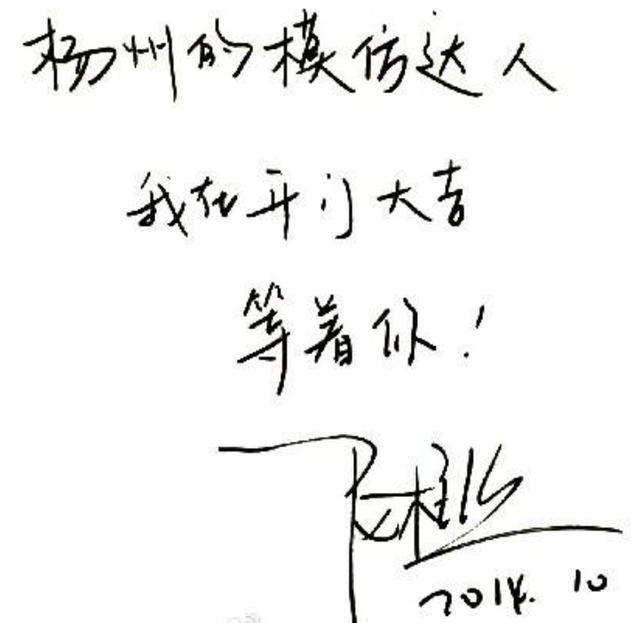 杨州的模仿达人
我在开门大吉
等着你！
2014. 10